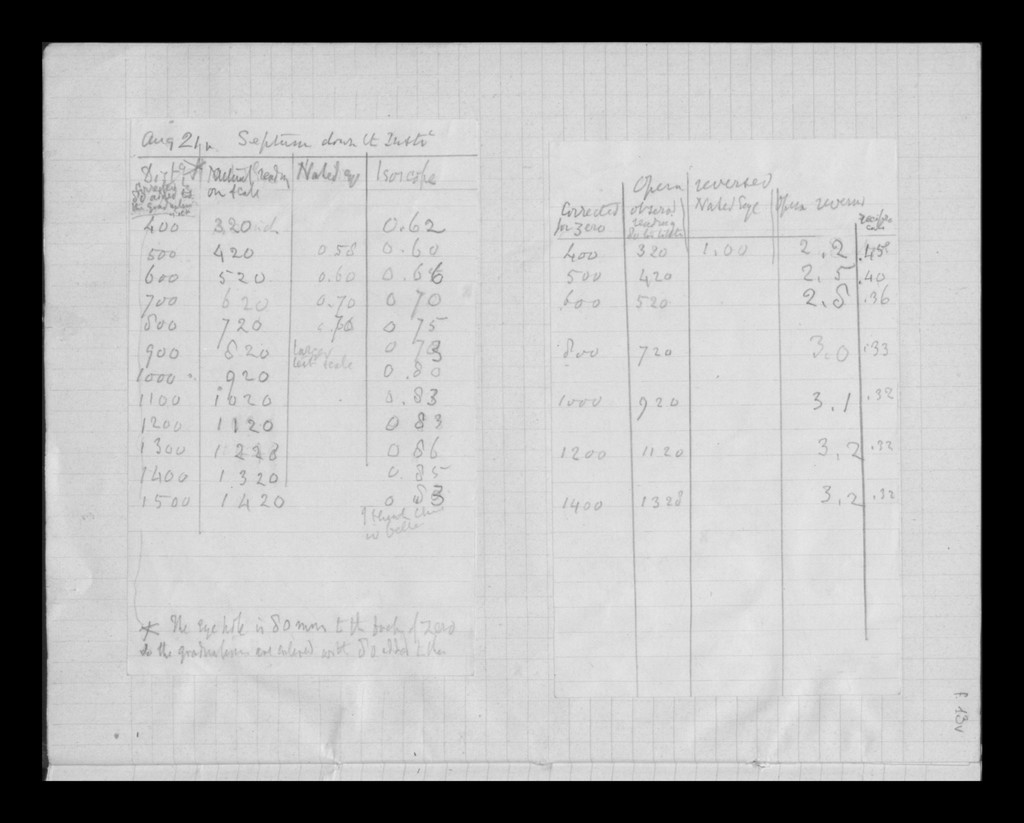 Aug 21 Septum down
Actual reading Naked eye Isoscope
on scale
400 320 0.62
500 420 0.58 0.60
600 520 0.60 0.66
700 620 0.70 0 70
800 720 .76 0 75
900 820 larger 0 78
test scale
1000 920 0.80
1100 1020 0.83
1200 1120 0 83
1300 0 86
1400 1320 0.85
1500 1420 0 83
I think this
is better
* The eye hole is 80 mm to the back of zero
so the graduations are entered with 80 added to them
Opera reversed
Corrected observed Naked Eye Opera reversed
for zero reading
400 320 1.00 2.2 .45
500 420 2.5 .40
600 520 2.8 .36
800 720 3.0 .33
1000 920 3.1 .32
1200 1120 3.2 .32
1400 1320 3.2 .32
f. 13v